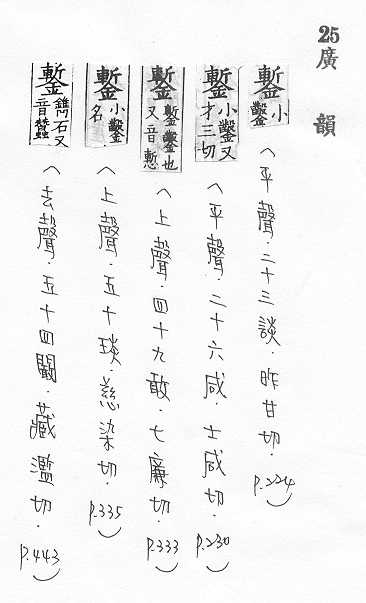 25廣韻
鏨 小鑿(平聲．二十三談．昨甘切．P.224)
鏨 小鑿又才三切(平聲．二十六咸．士咸切．P.230)
鏨 鏨鑿也又音慙(上聲．四十九敢．七廉切．P.333)
鏨 小鑿名(上聲．五十琰．慈染切．P.335)
鏨 鐫石又音蠶(去聲．五十四闞．藏濫切．P.443)